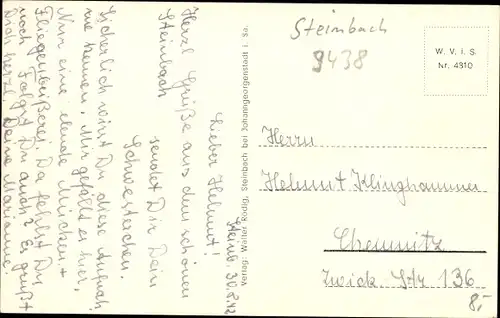 Steinb. 30.8.42
Lieber Helmut!
Herzl. Grüße aus dem schönen
Steinbach sendet Dir Dein
Schwesterchen.
Sicherlich wirst Du diese Aufnah
me kennen. Mir gefällt es hier,
Nur eine elende Mücken +
Fliegenbeißerei. Da fehlst Du
noch. Folgst Du auch? Es grüßt
Dich herzl. Deine Marianne.
Verlag: Walter Rödig, Steinbach bei Johanngeorgenstadt i. Sa.
Steinbach
9438
W. V. I. S.
Nr. 4310
Herrn
Helmut Klinghammer
Chemnitz
Zwick. Str. 136
8,-